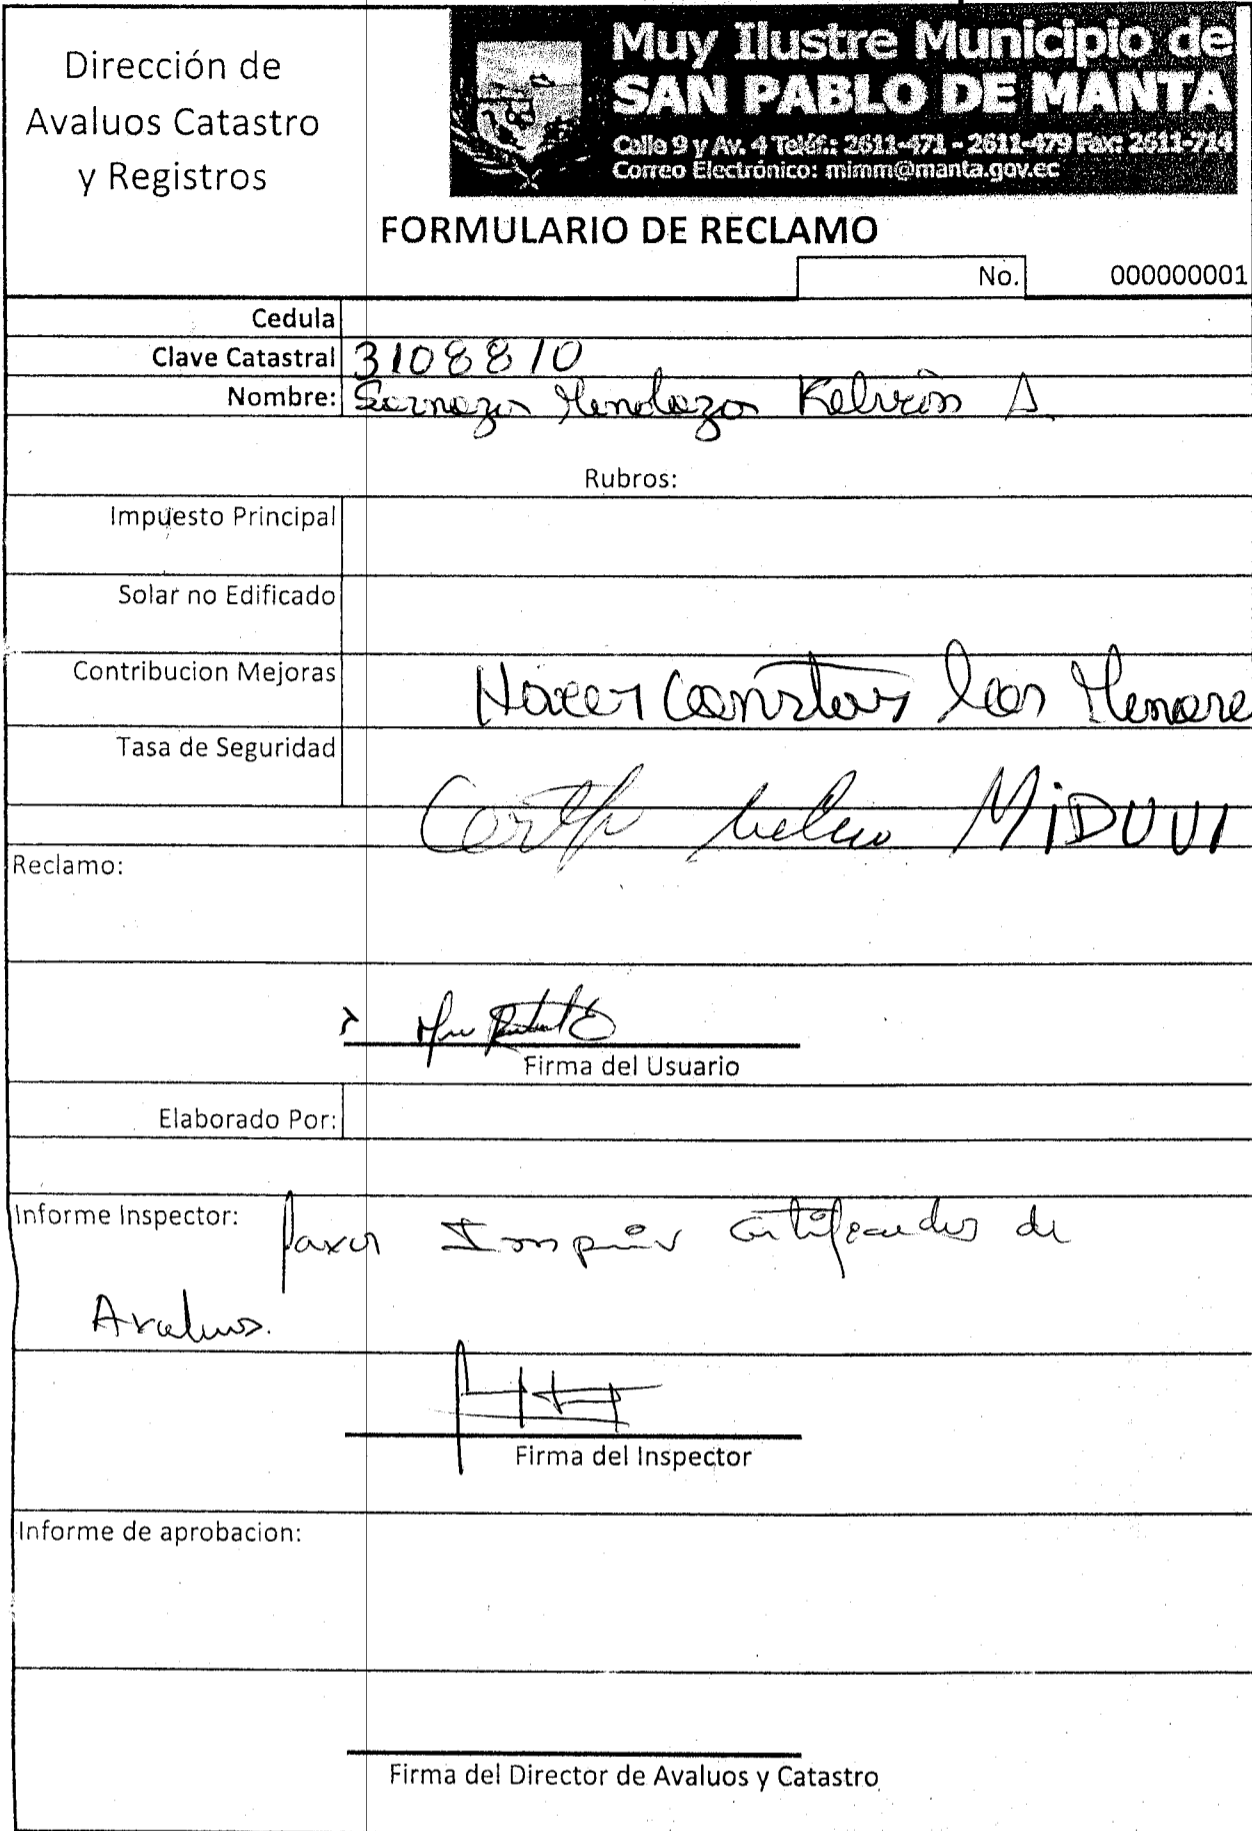 Dirección de
Avaluos Catastro
y Registros
Muy Ilustre Municipio de
SAN PABLO DE MANTA
Calle 9 y Av. 4 Teléf.: 2611-471 - 2611-479 Fax: 2611-714
Correo Electrónico: mimm@manta.gov.ec
FORMULARIO DE RECLAMO
No. 000000001
Cedula
Clave Catastral 3108810
Nombre: Mendoza A.
Rubros:
Impuesto Principal
Solar no Edificado
Contribucion Mejoras
Hacer Constar los
Tasa de Seguridad
MIDUVI
Reclamo:
Firma del Usuario
Elaborado Por:
Informe Inspector: favor certificados de
Avaluos.
Firma del Inspector
Informe de aprobacion:
Firma del Director de Avaluos y Catastro